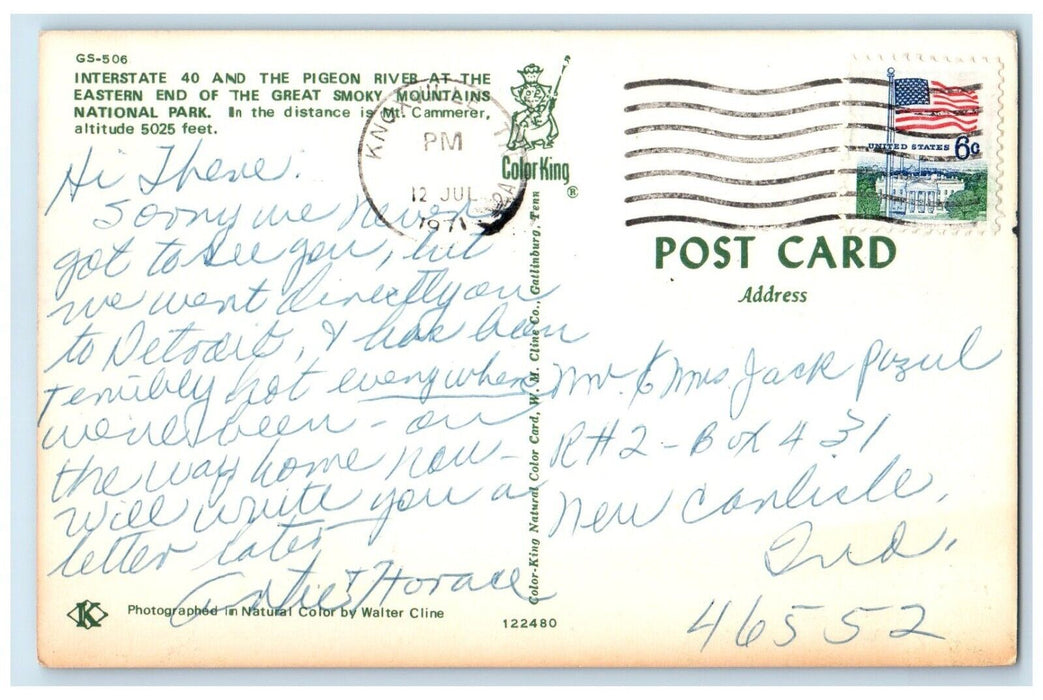 GS-506
INTERSTATE 40 AND THE PIGEON RIVER AT THE
EASTERN END OF THE GREAT SMOKY MOUNTAINS
NATIONAL PARK. In the distance is Mt. Cammerer,
altitude 5025 feet.
Hi There:
Sorry we never
got to see you, but
we went directly on
to Detroit, & has been
terribly hot everywhere
we've been - on
the way home now -
will write you a
letter later
& Horace
Photographed in Natural Color by Walter Cline
K
122480
Color King
®
Color-King Natural Color Card, W. M. Cline Co., Gatlinburg, Tenn
PM
12 JUL
1971
UNITED STATES 6c
POST CARD
Address
Mr. & Mrs Jack Pozul
R#2 - Box 431
New Carlisle,
Ind.
46552